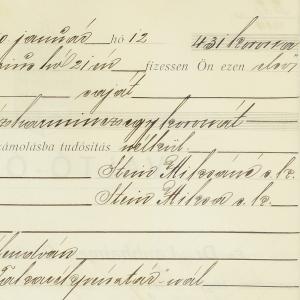 január hó 12 431 korona
hó 21 én fizessen Ön ezen első
saját
harminczegy koronát
számolásba tudósitás nélkül.
Stein Miksáné s.k.
Stein Miksa s.k.
Takarékpénztár"-nál